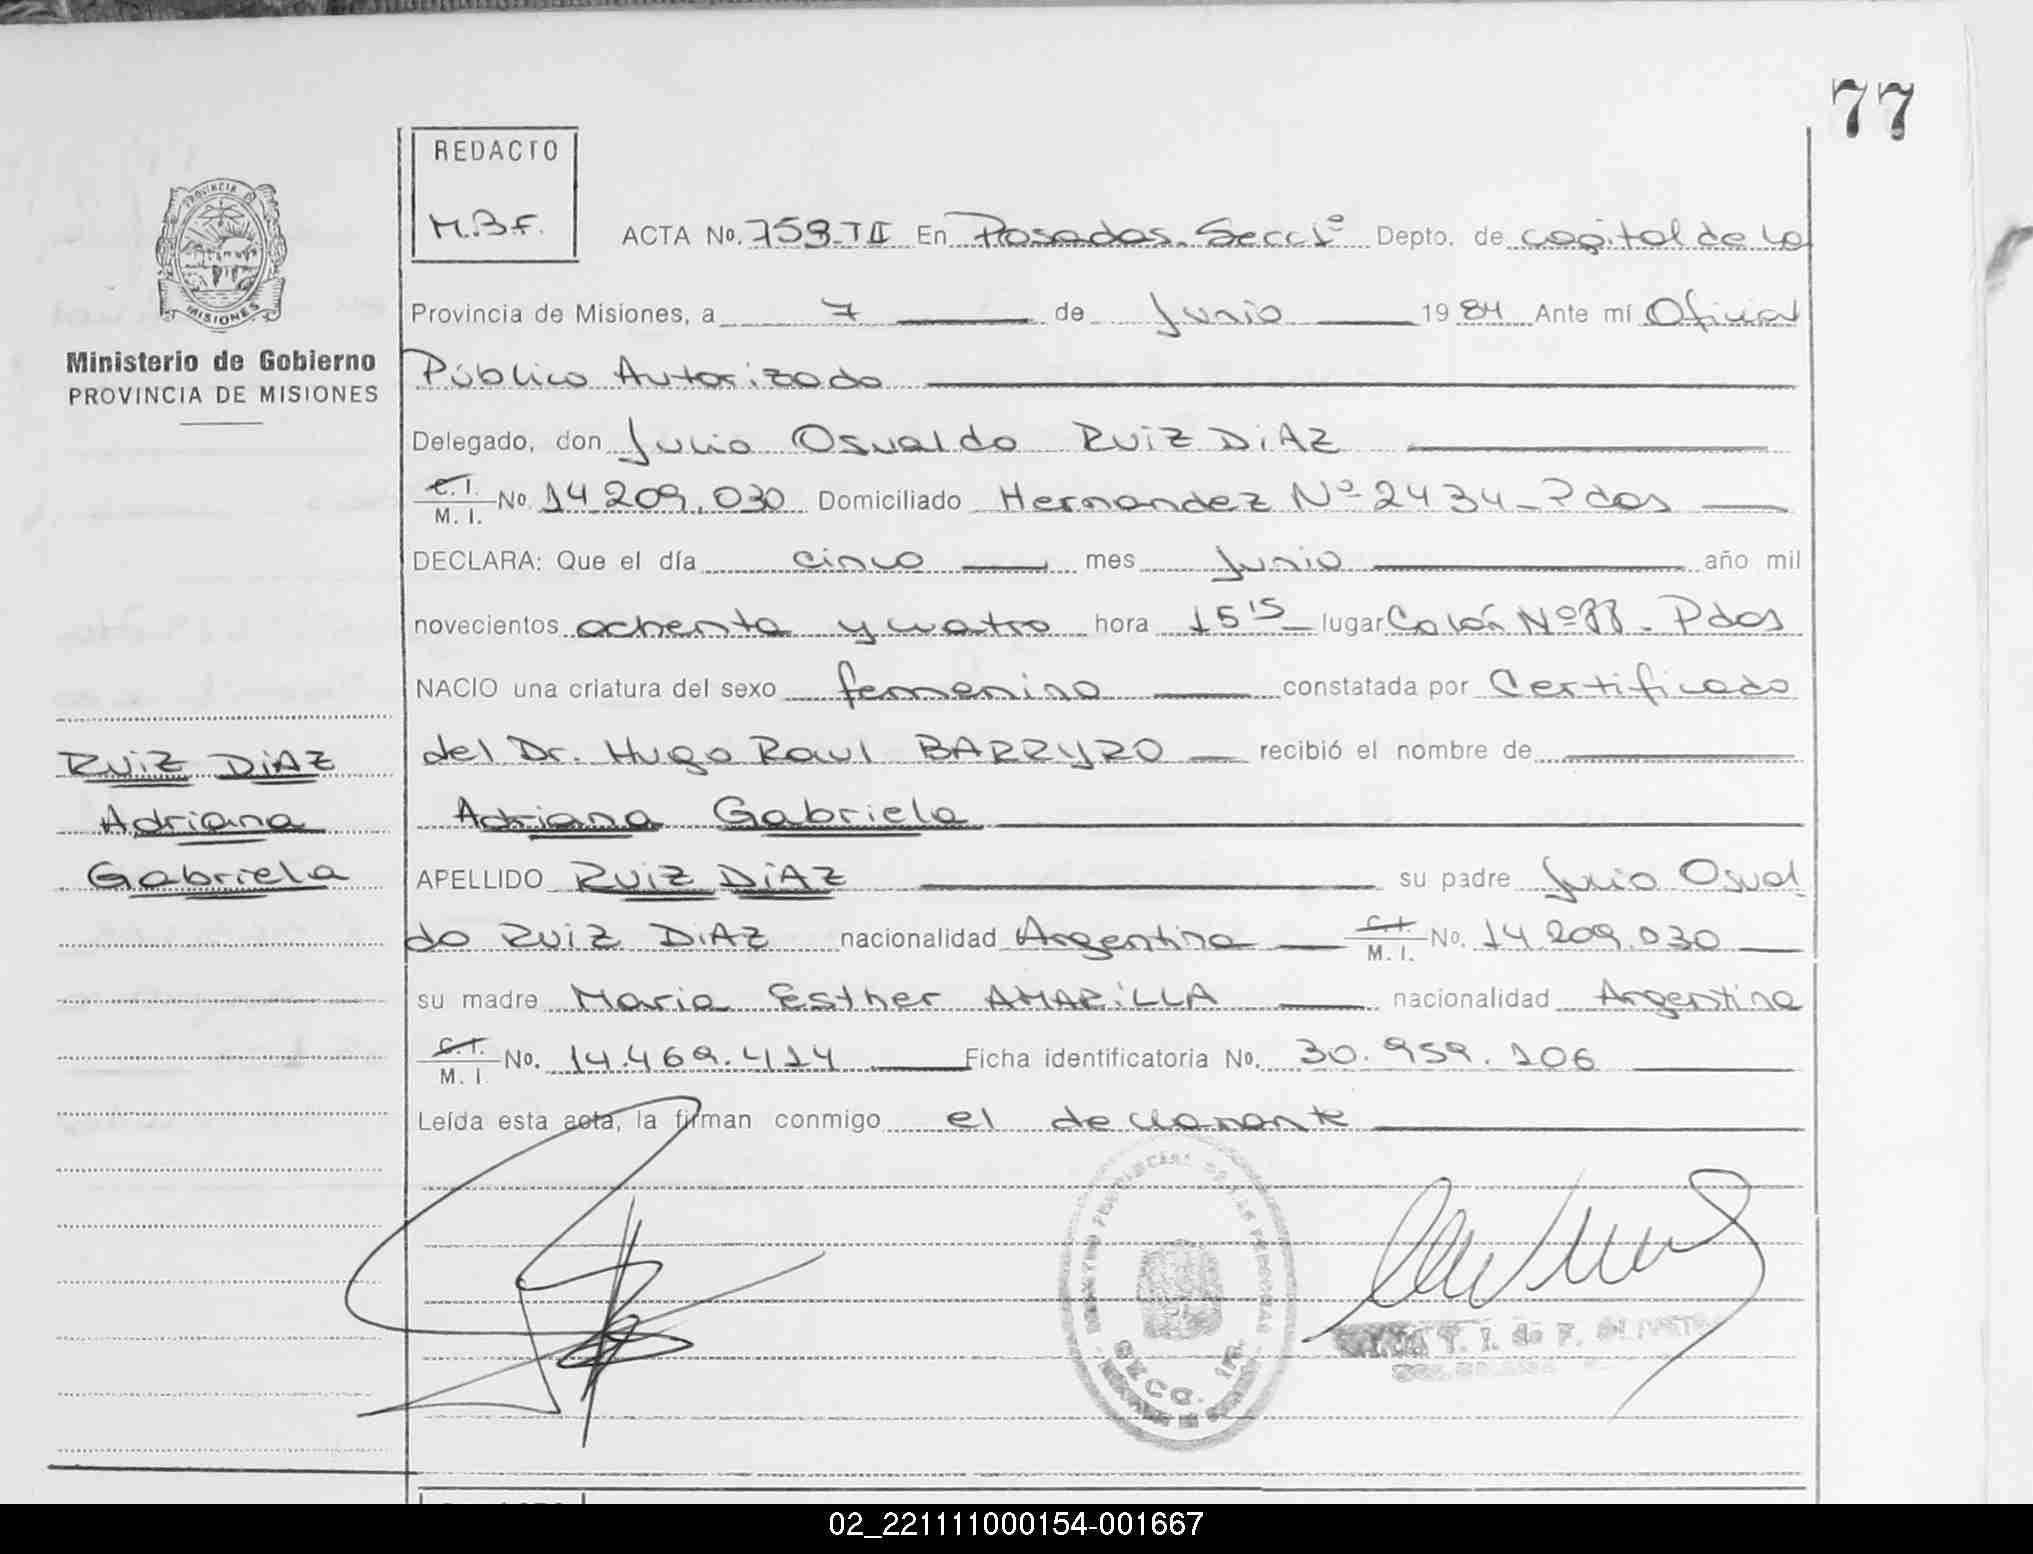 77
REDACTO
M.B.F.
ACTA No. 759-TII En Posadas. Secc 1º Depto. de capital de la
PROVINCIA DE
MISIONES
Ministerio de Gobierno
PROVINCIA DE MISIONES
Provincia de Misiones, a 7 de Junio 1984 Ante mí Oficial
Público Autorizado
Delegado, don Julio Osvaldo RUIZ DIAZ
C. I. M. I. No. 14.209.030 Domiciliado Hernandez Nº 2434 - Pdas
DECLARA: Que el día cinco mes Junio año mil
novecientos ochenta y cuatro hora 15 15 lugar Colón Nº 88 - Pdas
NACIO una criatura del sexo femenino constatada por Certificado
del Dr. Hugo Raul BARRYRO recibió el nombre de
Adriana Gabriela
APELLIDO RUIZ DIAZ su padre Julio Osval
do RUIZ DIAZ nacionalidad Argentina C.I. M. I. No. 14.209.030
su madre Maria Esther AMARILLA nacionalidad Argentina
C.I. M. I No. 14.469.414 Ficha identificatoria No. 30.959.106
Leída esta acta, la firman conmigo el declarante
RUIZ DIAZ
Adriana
Gabriela
REGISTRO PROVINCIAL DE LAS PERSONAS
SECC. 1ra.
02_221111000154-001667